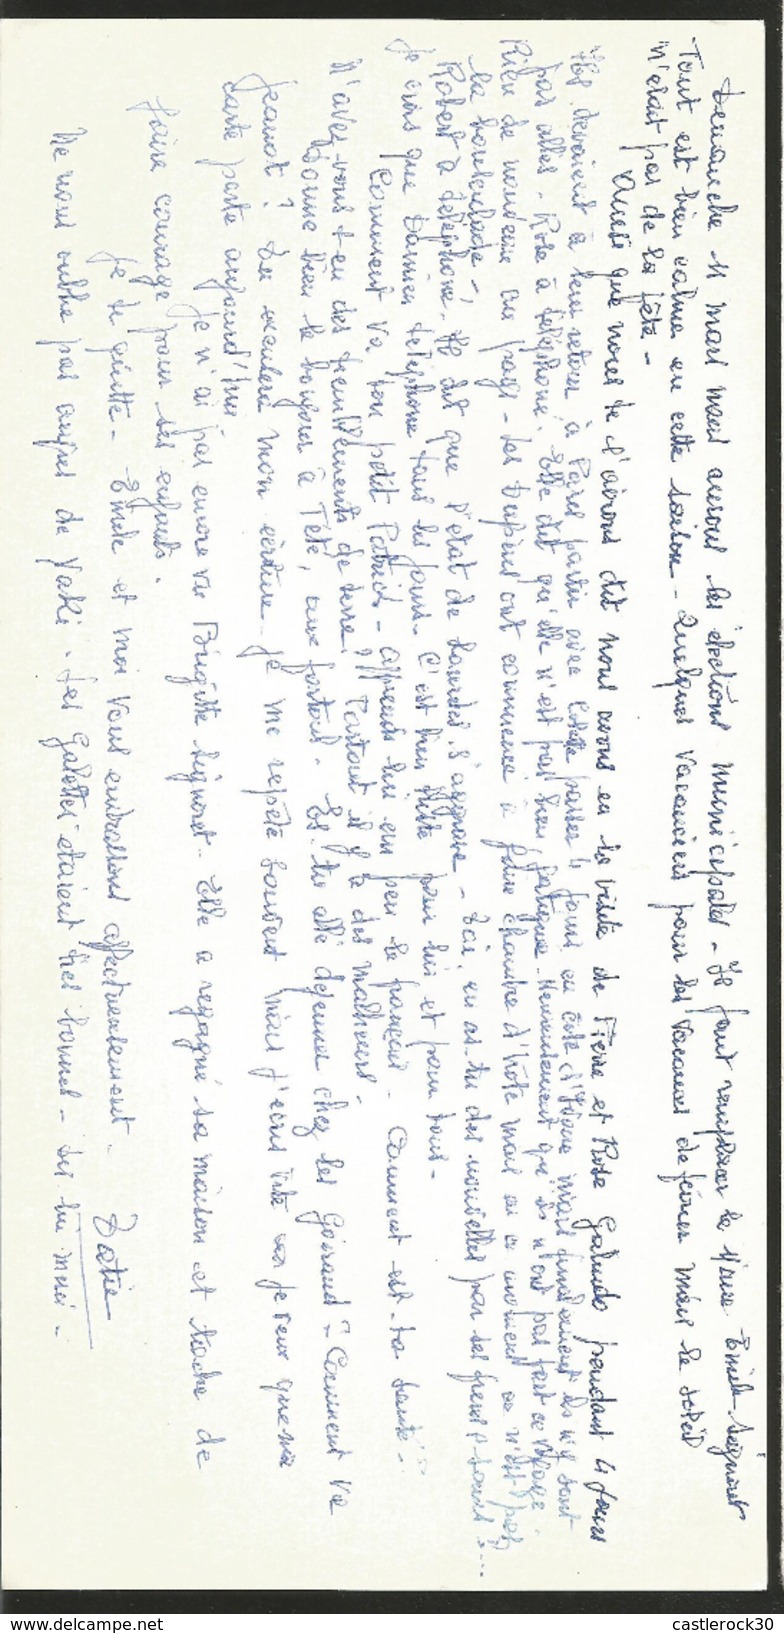 Dimanche 11 mars nous aurons les élections municipales - Il faut remplacer le Maire Emile Signoret
Tout est bien calme en cette saison - Quelques vacanciers pour les vacances de février mais le soleil
n'était pas de la fête -
Ainsi que nous te l'avions dit nous avons eu la visite de Pierre et Rose pendant 4 jours
Ils devaient à leur retour à Paris partir avec passer 4 jours en Côte d'Azur mais finalement ils n'y sont
pas allés - Rose a téléphoné. Elle dit qu'elle n'est pas bien fatiguée. Heureusement qu'ils n'ont pas fait ce voyage.
Rien de nouveau au pays - Les Dupins ont commencé à faire chambre d'hôte mais en ce moment ce n'est pas
la bousculade -
Robert a téléphoné. Il dit que l'état de s'aggrave - Toi, en as-tu des nouvelles par ses frères & soeurs ? ...
Je crois que Damien téléphone tous les jours. C'est bien triste pour lui et pour tous -
Comment va ton petit Patrick - apprends lui un peu le français - Comment est ta santé ?
N'avez-vous + eu des tremblements de terre ? Partout il y a des malheurs -
Donne bien le bonjour à Tété, aux Fortoul - Es-tu allé déjeuner chez les Goirand ? Comment va
Jeannot ? Tu excuseras mon écriture - Je me répète souvent mais j'écris vite car je veux que ma
carte parte aujourd'hui
Je n'ai pas encore vu Brigitte Signoret - Elle a regagné sa maison et tâche de
faire courage pour ses enfants.
Je te quitte - Emile et moi vous embrassons affectueusement. Datie
Ne nous oublie pas auprès de Yaki - Les Galettes étaient très bonnes - Dis lui merci -
castlerock30